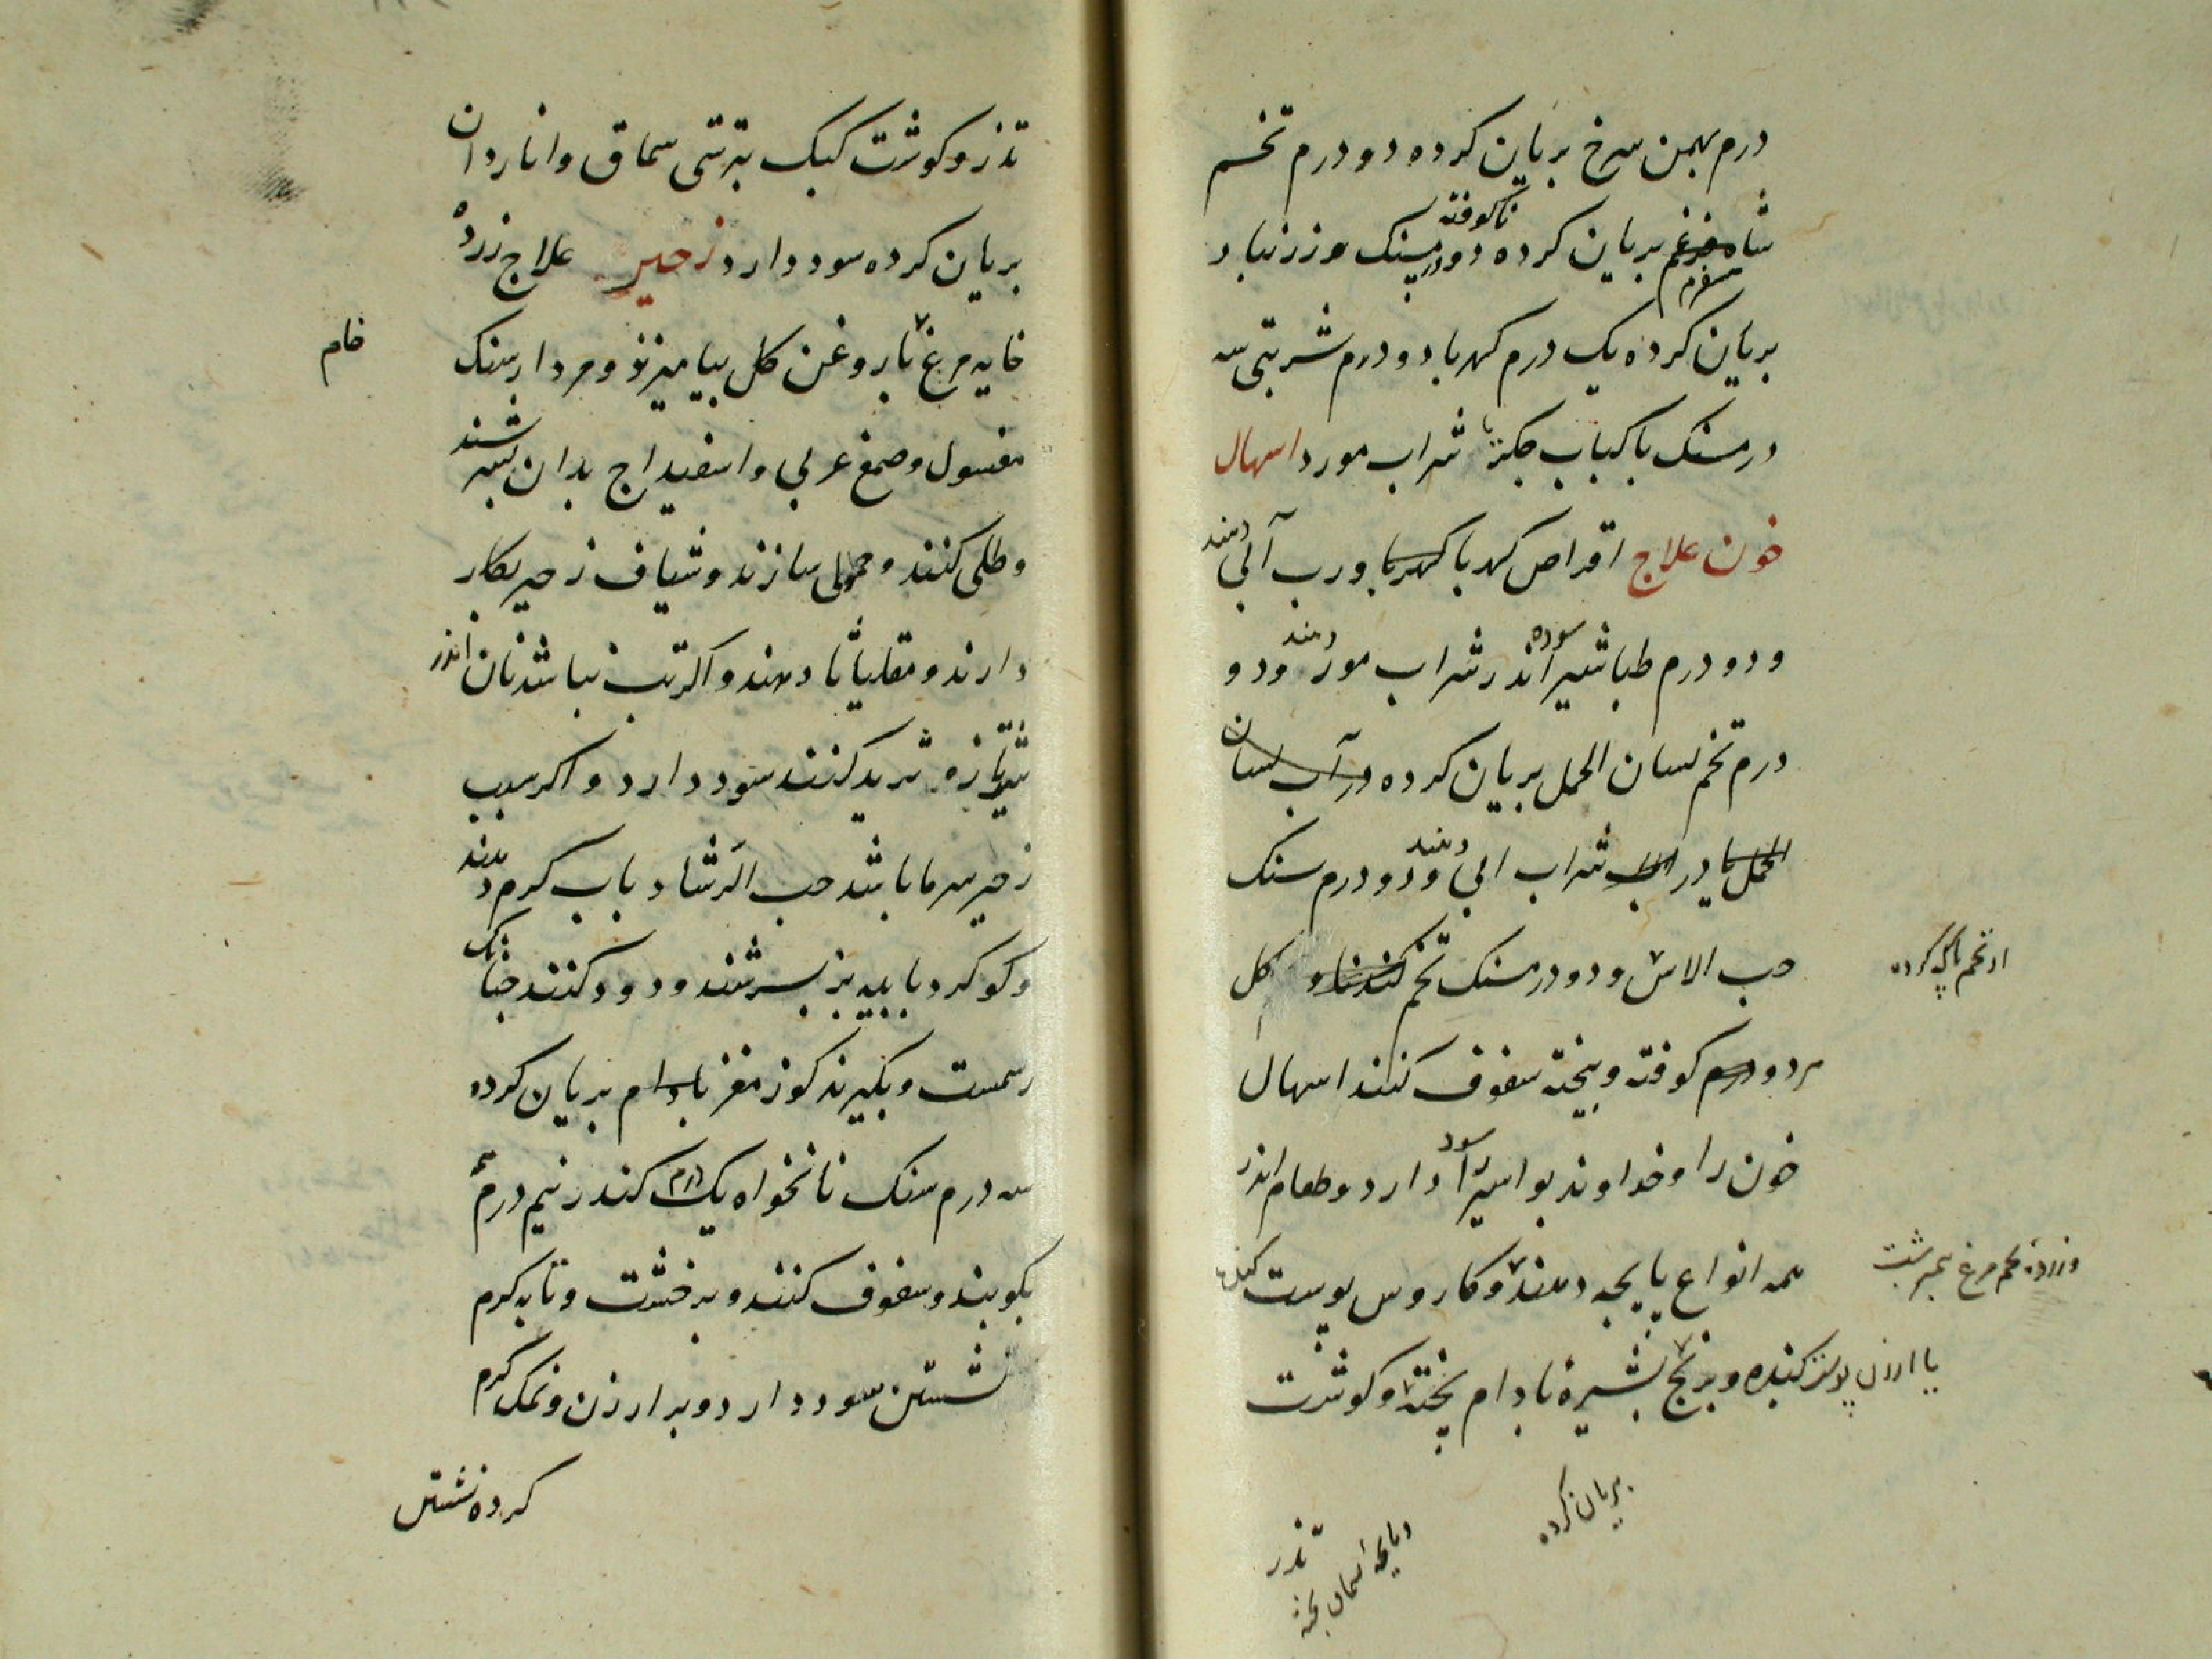 درم بهمن سرخ بریان کرده دو درم تخم
شاه سفرم بریان کرده ناکوفته دو درمسنک و زرنباد
بریان کرده یک درم کهربا دو درم شربتی سه
درمسنک با کباب جکر یا شراب مورد اسهال
خون علاج اقراص کهربا کهربا و رب آبی دهند
و دو درم طباشیر سوده اندر شراب مورد دهند و دو
درم تخم لسان الحمل بریان کرده در آب لسان
الحمل یا در شراب ابی دهند و دو درم سنک
حب الاس و دو درمسنک تخم کندنا و کل
هر دو درم کوفته و بیخته سفوف کنند اسهال
خون را و خداوند بواسیر را سود دارد و طعام اندر
همه انواع پایچه دهند و کاورس پوست کنده
یا ارزن پوست کنده و برنج بشیرهٔ بادام پخته و کوشت
وزردهٔ تخم مرغ نیمبرشت
بریان کرده
تذر
تذرو کوشت کبک بترشی سماق و اناردان
بریان کرده سود دارد زحیر علاج زرده
خایه مرغ با روغن کل بیامیزند و مردارسنک
خام
مغسول و صمغ عربی و اسفیداج بدان بسرشند
و طلی کنند و حمولی سازند و شیاف زحیر بکار
دارند و مقلیاثا دهند و اکر تب نباشد نان اندر
شیر تازه ثرید کنند سود دارد و اکر سبب
زحیر سرما باشد حب الرشاد باب کرم دهند
و کوکرد با پیه بز بسرشند و دود کنند چنانک
رسمست و بکیرند کوز مغز بادام بریان کرده
سه درم سنک نانخواه یک درم کندر نیم درم
بکوبند و سفوف کنند و بر خشت و تابه کرم
نشستن سود دارد و بر ارزن و نمک کرم
کرده نشستن